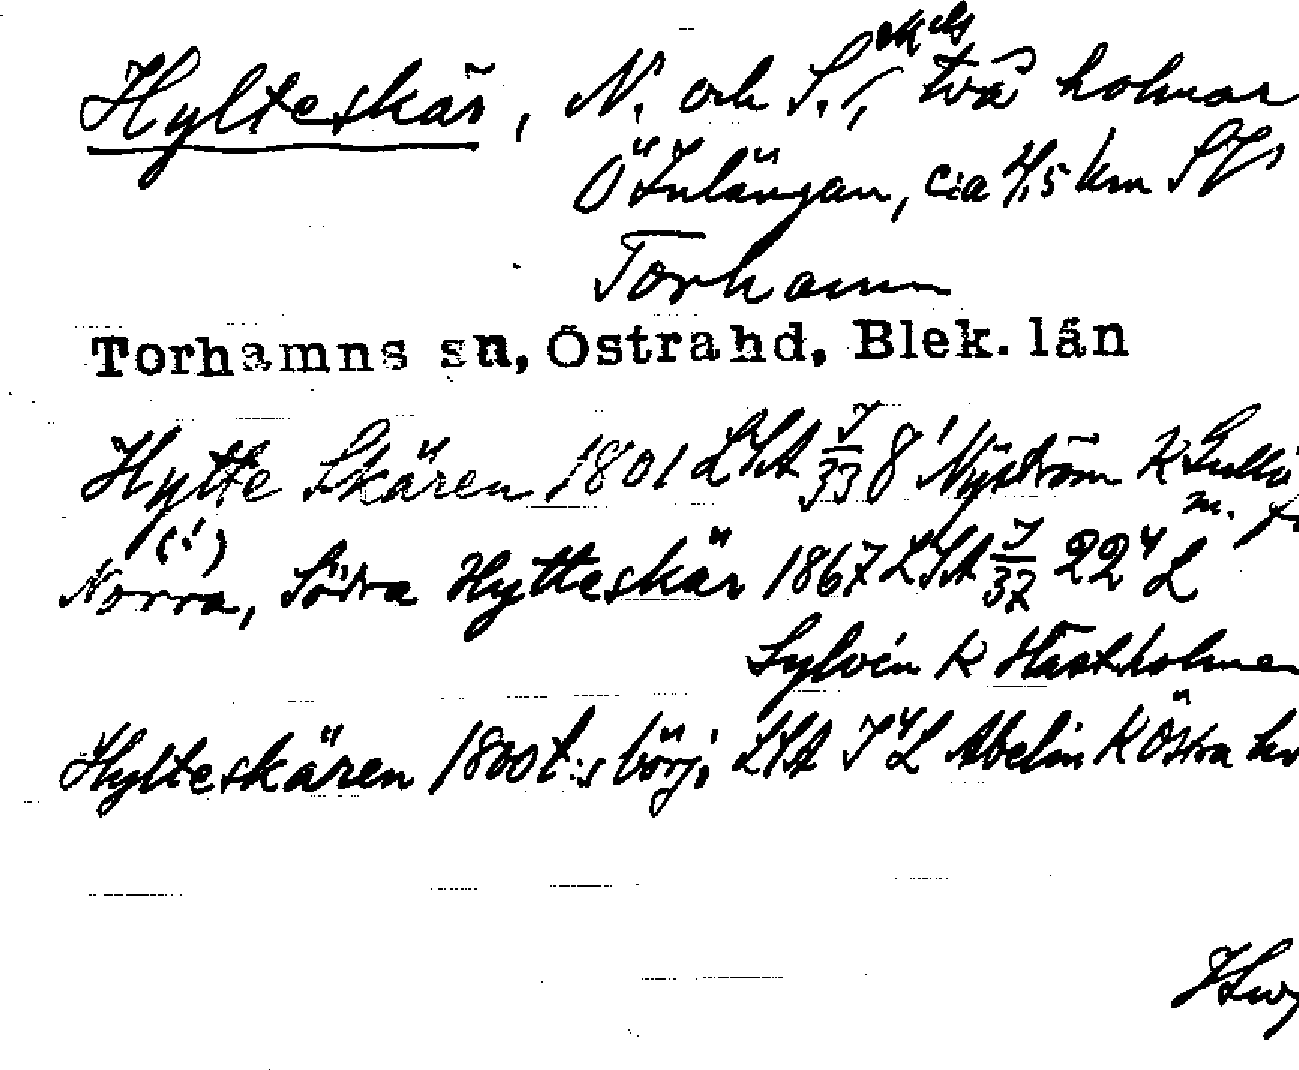 Hylteskär, N. och S., ek. bls två holmar
Ö Inlängan, c:a 4,5 km
Torhamn
Torhamns sn, Östra hd, Blek. län
Hytte Skären 1801 LSA J/33 8' Nyström K
(!)
Norra, Södra Hytteskär 1867 LSA J/37 22 L
Sylvén K Hästholmen
Hylteskären 1800t:s börj. LSA Abelin K Östra